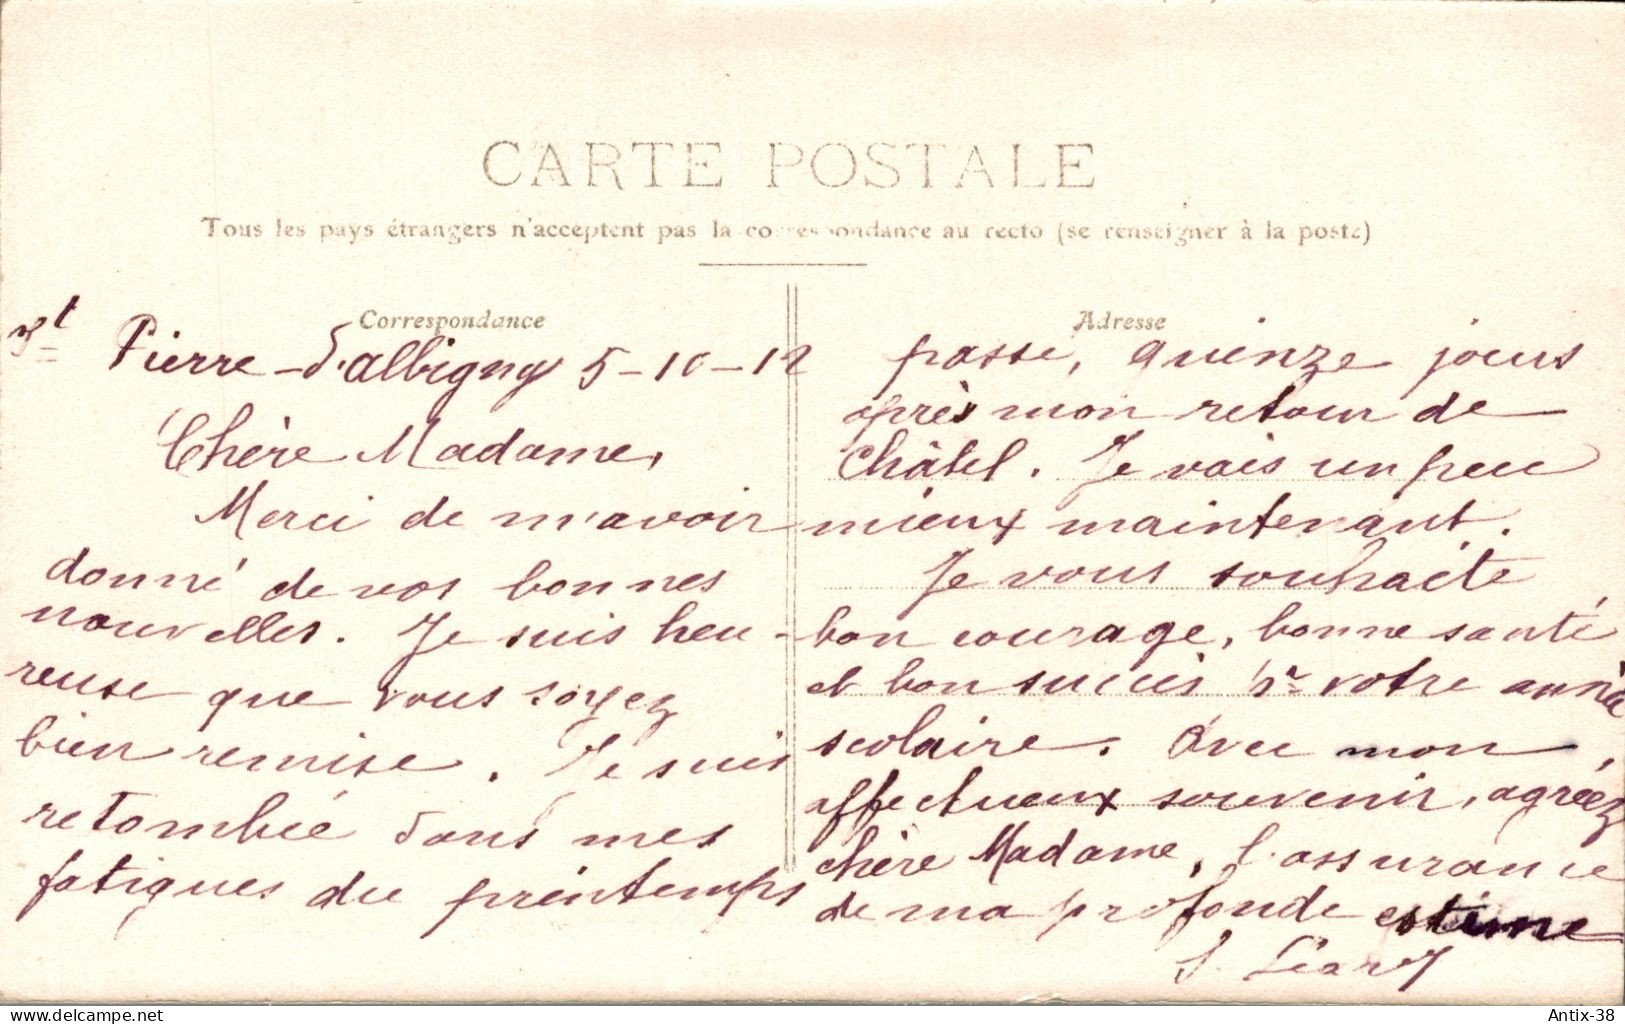 CARTE POSTALE
Tous les pays étrangers n'acceptent pas la correspondance au recto (se renseigner à la poste)
Correspondance
St Pierre-d'Albigny 5-10-12
Chère Madame,
Merci de m'avoir
donné de vos bonnes
nouvelles. Je suis heu-
reuse que vous soyez
bien remise. Je suis
retombée dans mes
fatigues du printemps
Adresse
passé, quinze jours
après mon retour de
Châtel. Je vais un peu
mieux maintenant.
Je vous souhaite
bon courage, bonne santé
et bon succès pr votre année
scolaire. Avec mon
affectueux souvenir, agréez
chère Madame, l'assurance
de ma profonde estime
delcampe.net
Antix-38